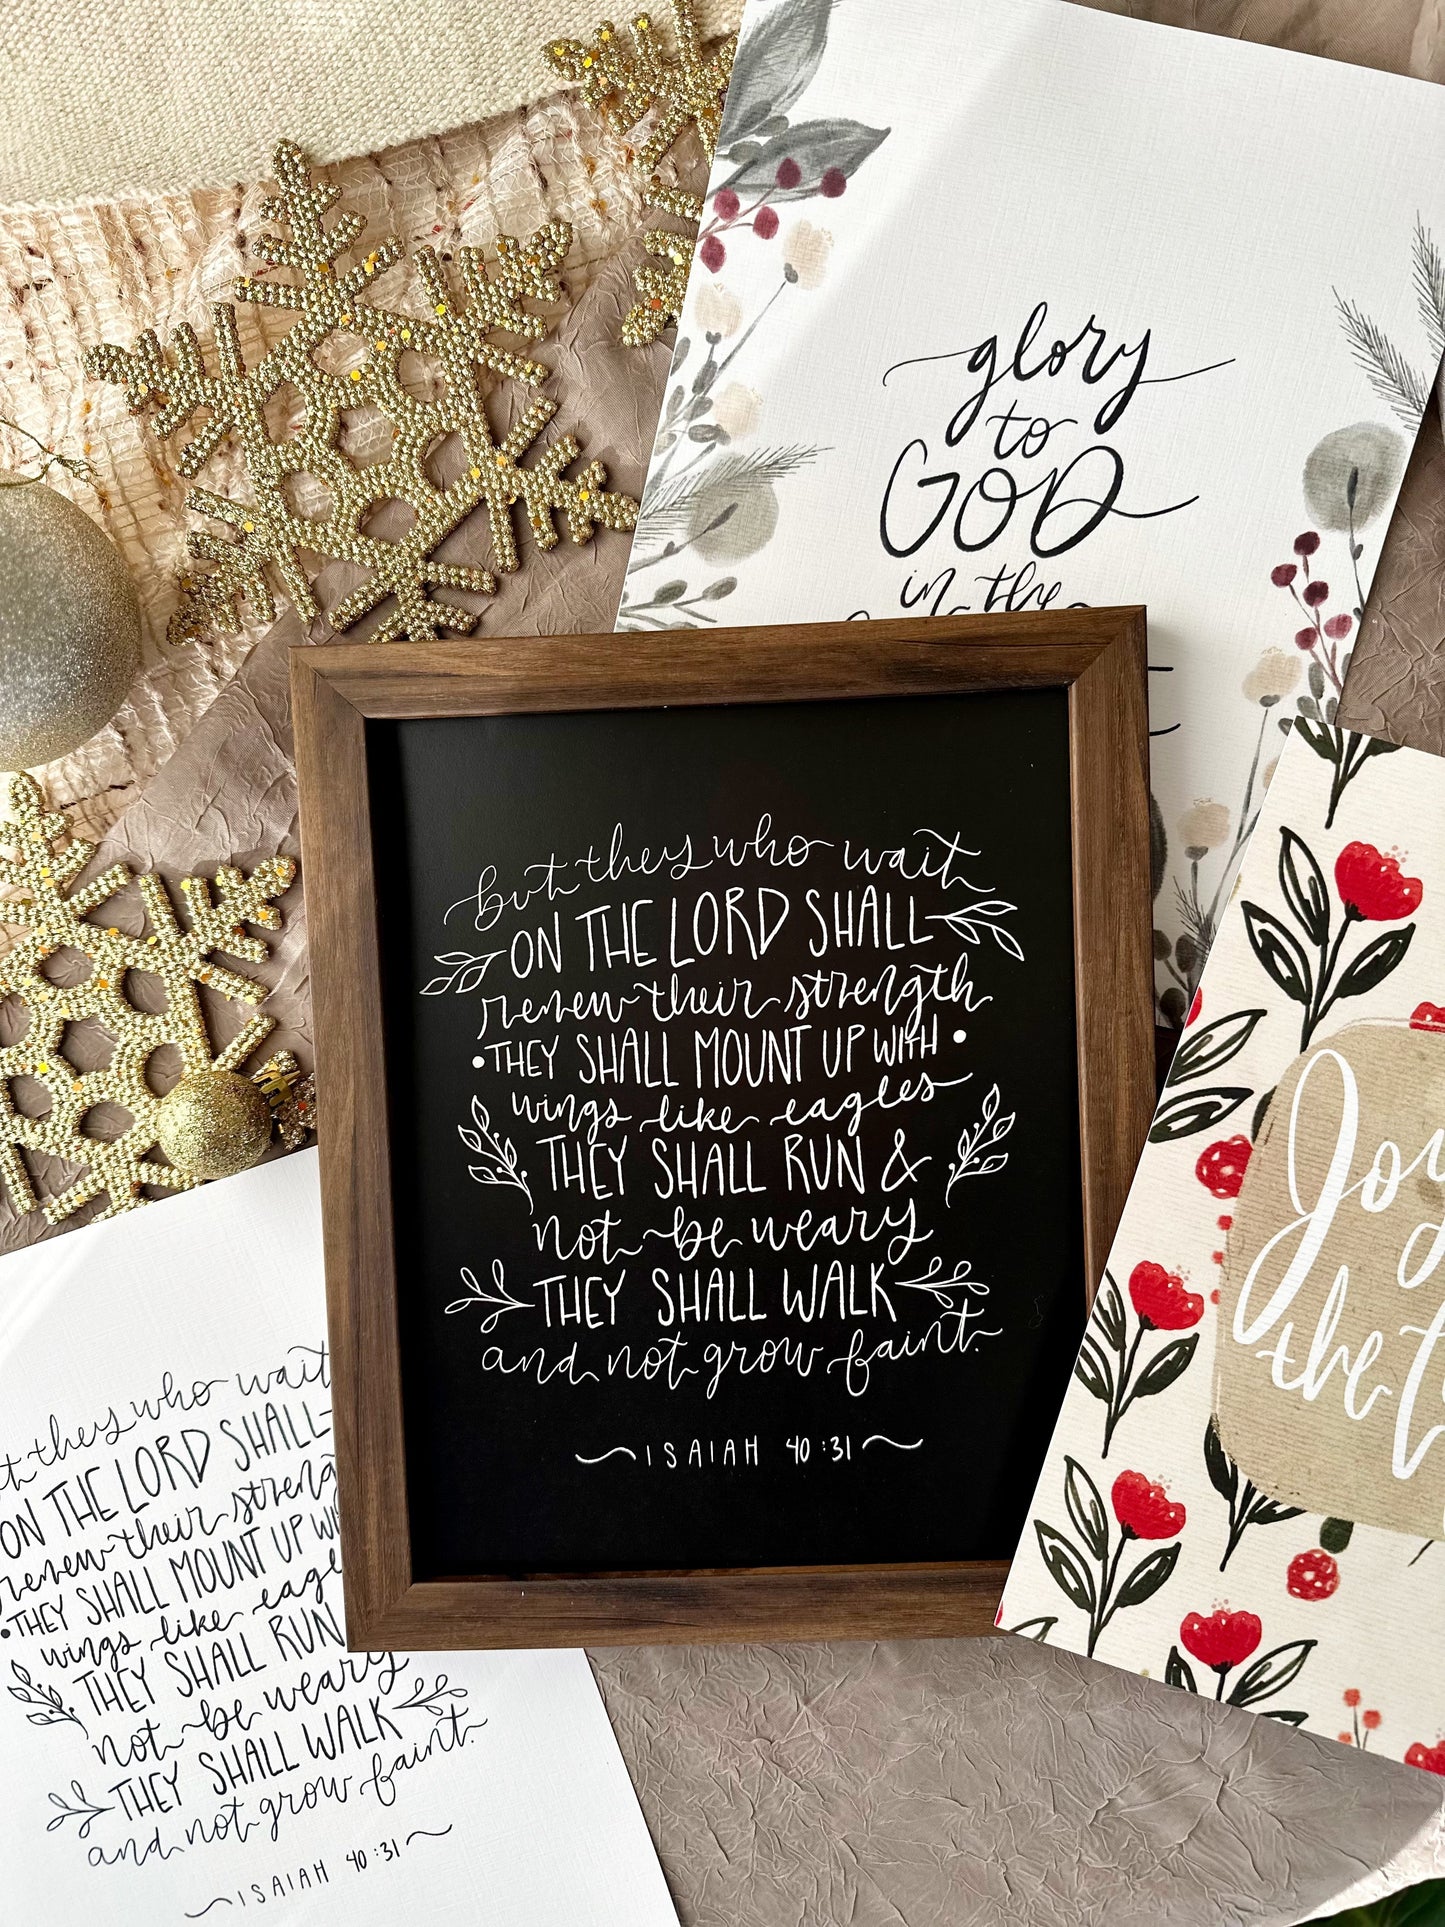 glory
to
GOD
in the
but they who wait
ON THE LORD SHALL
renew their strength
• THEY SHALL MOUNT UP WITH •
wings like eagles
THEY SHALL RUN &
not be weary
THEY SHALL WALK
and not grow faint.
ISAIAH 40:31
they who wait
ON THE LORD SHALL
renew their
• THEY SHALL MOUNT UP
wings like
THEY SHALL RUN
not be weary
THEY SHALL WALK
and not grow faint.
ISAIAH 40:31
the